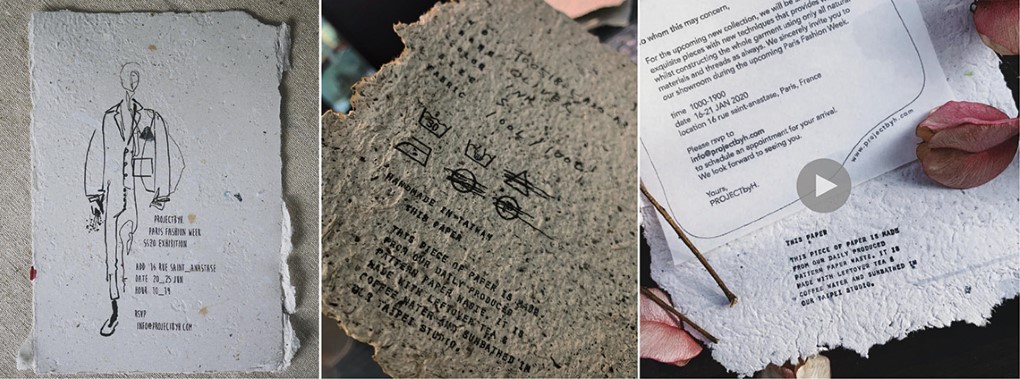 PROJECTBYH.
PARIS FASHION WEEK
SS20 EXHIBITION
ADD 16 RUE SAINT_ANASTASE
DATE 20_25 JUN
HOUR 10_19
RSVP
INFO@PROJECTBYH.COM
30
HANDMADE IN TAIWAN
THIS PAPER
THIS PIECE OF PAPER IS MADE
FROM OUR DAILY PRODUCED
PATTERN PAPER WASTE. IT IS
MADE WITH LEFTOVER TEA &
COFFEE WATER AND SUNBATHED IN
OUR TAIPEI STUDIO.
o whom this may concern,
For the upcoming new collection, we will be
exquisite pieces with new techniques that provides
whilst constructing the whole garment using only all natural
materials and threads as always. We sincerely invite you to
our showroom during the upcoming Paris Fashion Week.
time 1000-1900
date 16-21 JAN 2020
location 16 rue saint-anastase, Paris, France
Please rsvp to
info@projectbyh.com
to schedule an appointment for your arrival.
We look forward to seeing you.
Yours,
PROJECTbyH.
www.projectbyh.com
THIS PAPER
THIS PIECE OF PAPER IS MADE
FROM OUR DAILY PRODUCED
PATTERN PAPER WASTE. IT IS
MADE WITH LEFTOVER TEA &
COFFEE WATER AND SUNBATHED IN
OUR TAIPEI STUDIO.